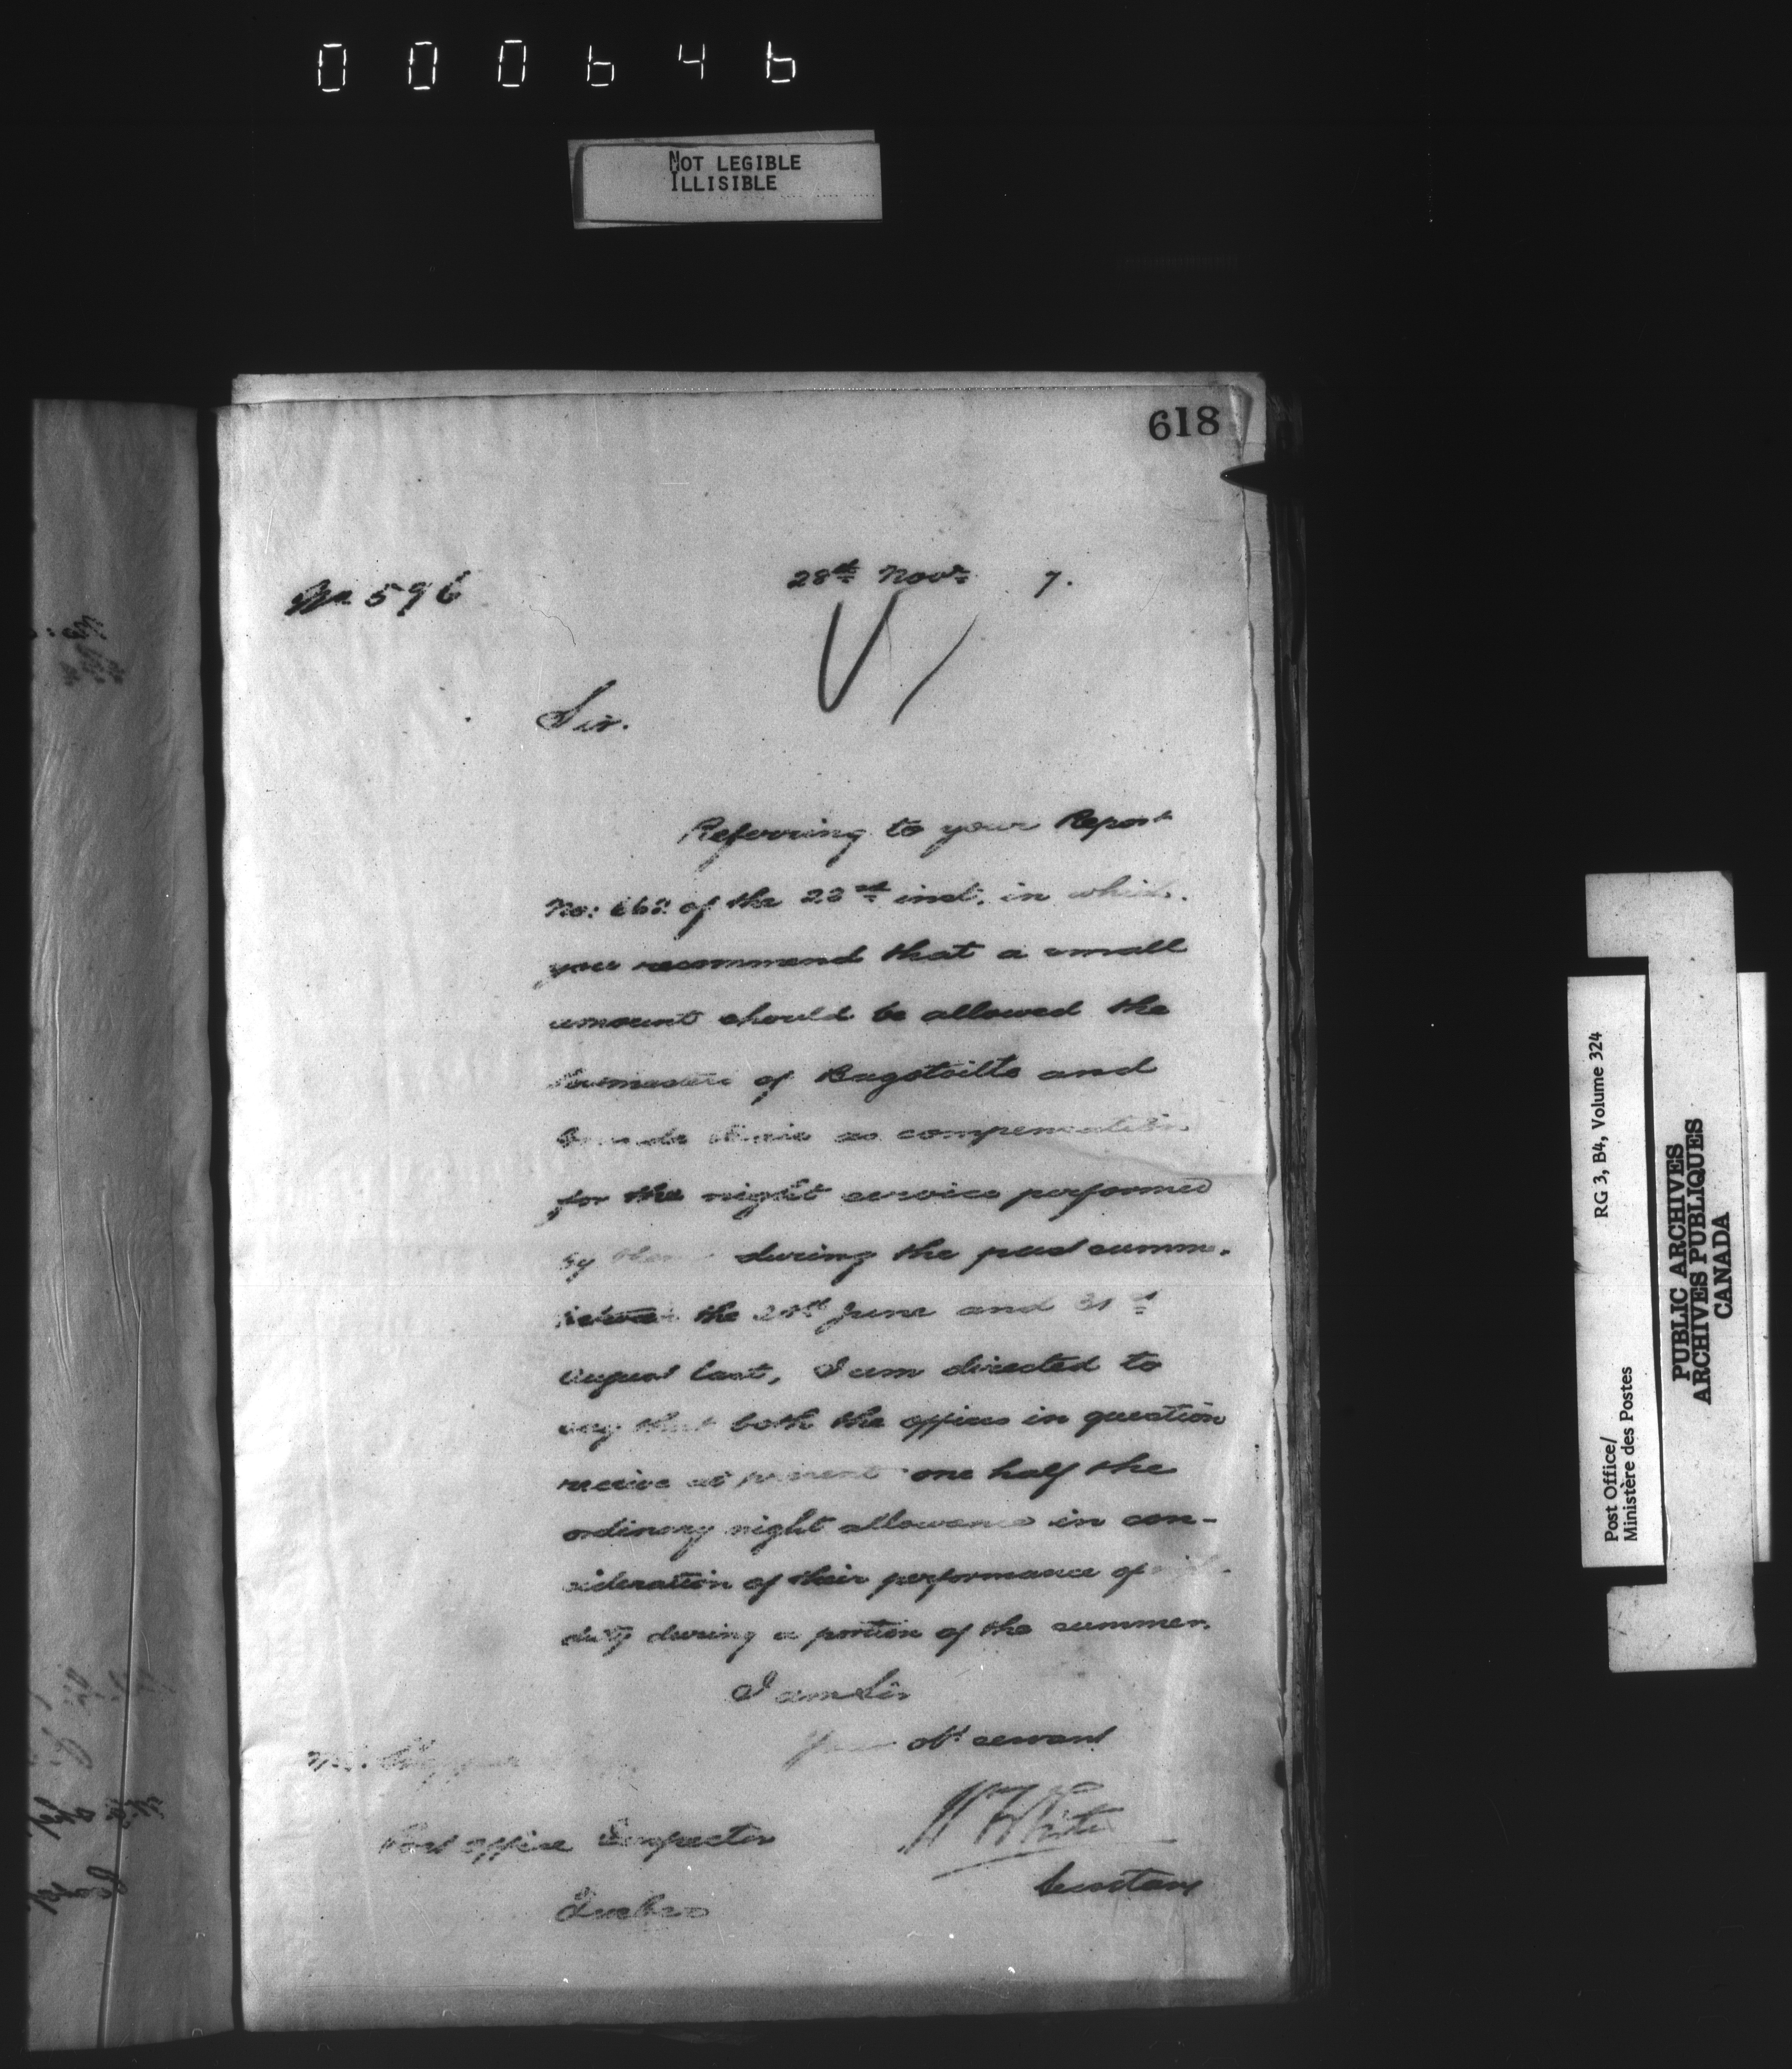 000646
NOT LEGIBLE
ILLISIBLE
618
No 596
28th Novr 7.
Sir.
Referring to your Report
No: of the 22nd inst. in which
you recommend that a small
amount should be allowed the
of Bagotville and
as compensation
for the night service performed
by them during the past summer
between the June and 31st
August last, I am directed to
say that both the offices in question
receive at present one half the
ordinary night allowance in con-
sideration of their performance of
duty during a portion of the summer.
I am Sir
Your obt servant
Mr.
Post Office Inspector
Quebec
W White
Secretary
RG 3, B4, Volume 324
Post Office/
Ministère des Postes
PUBLIC ARCHIVES
ARCHIVES PUBLIQUES
CANADA